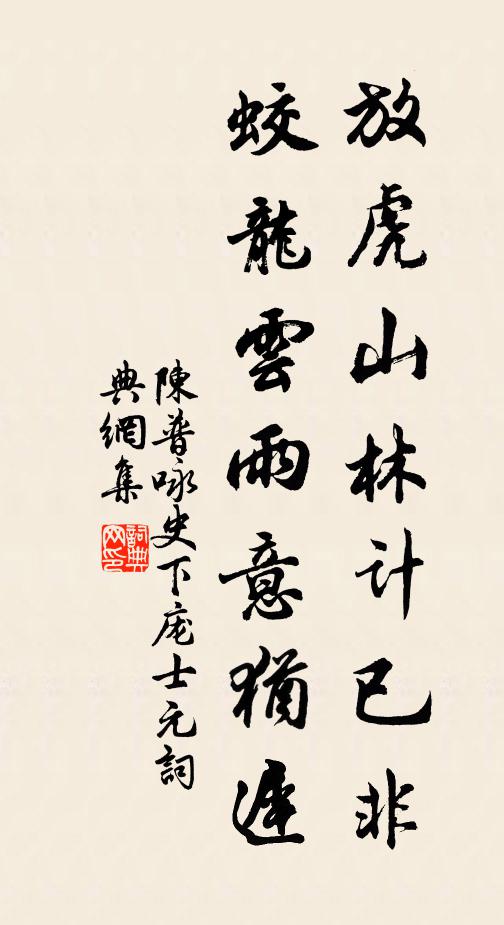 放虎山林計已非
蛟龍雲雨意猶遲
陳普咏史下庞士元詞
典網集
詞典
网印